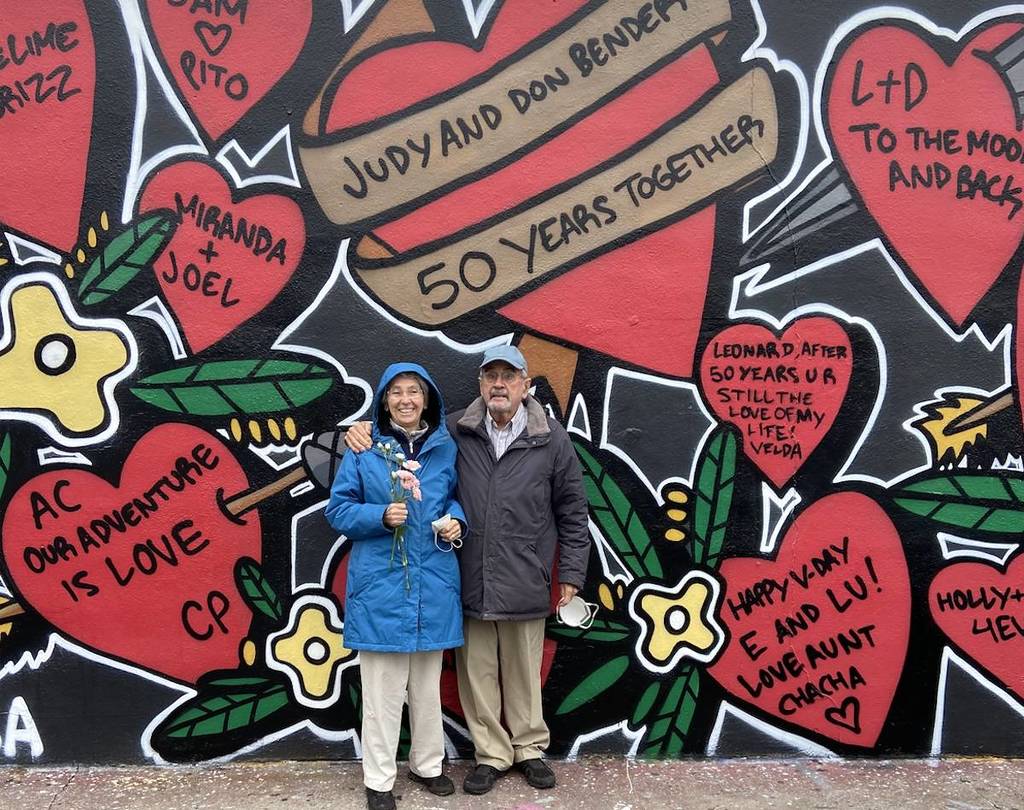 PITO
JUDY AND DON BENDER
50 YEARS TOGETHER
L+D
TO THE
AND BACK
MIRANDA
+
JOEL
LEONARD, AFTER
50 YEARS U R
STILL THE
LOVE OF MY
LIFE!
VELDA
AC
OUR ADVENTURE
IS LOVE
CP
HAPPY V-DAY
E AND LU!
LOVE AUNT
CHACHA
HOLLY+